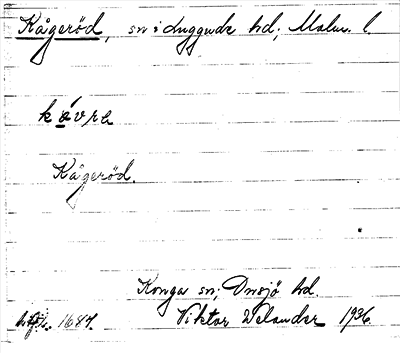 Kågeröd, sn i Luggude hd, Malm. l.
kåvra
Kågeröd.
Konga sn, Onsjö hd.
1687. Viktor Welander 1936